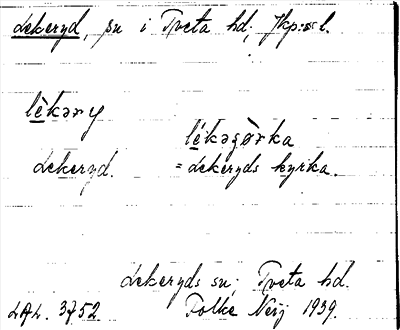 Lekeryd, sn i Tveta hd; Jkp:s l.
lèkəry
lékəʂò̱rka
Lekeryd.
= Lekeryds kyrka.
Lekeryds sn; Tveta hd.
LAL. 3752
Folke Neij 1939.